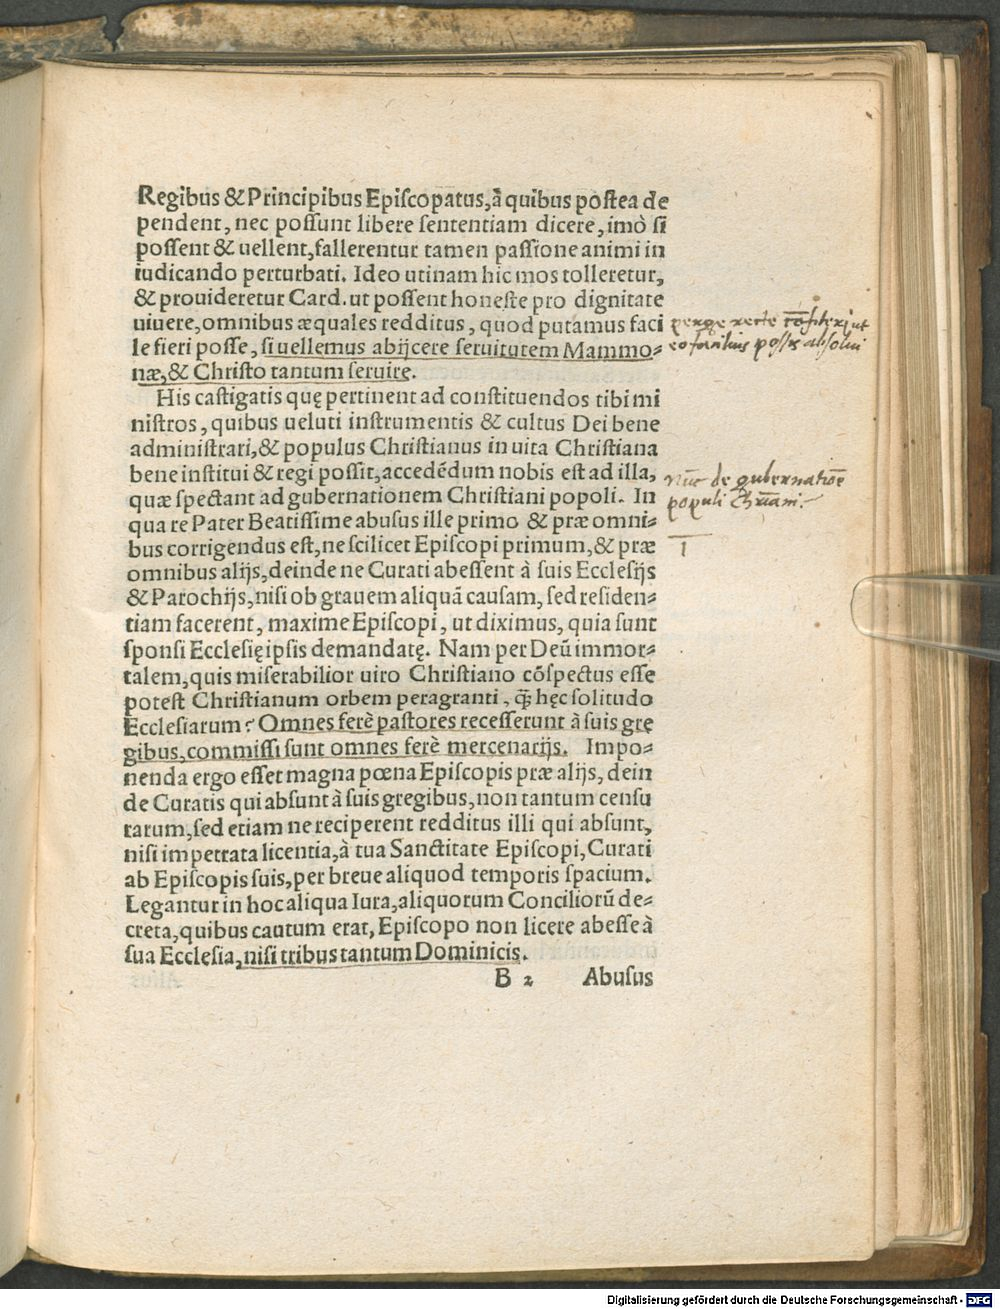 Regibus & Principibus Episcopatus, à quibus postea de
pendent, nec possunt libere sententiam dicere, imò si
possent & uellent, fallerentur tamen passione animi in
iudicando perturbati. Ideo utinam hic mos tolleretur,
& prouideretur Card. ut possent honeste pro dignitate
uiuere, omnibus æquales redditus, quod putamus faci
le fieri posse, si uellemus abijcere seruitutem Mammo⸗
næ, & Christo tantum seruire.
perge recte cōfiteri ut
eo facilius possis absolui
His castigatis quę pertinent ad constituendos tibi mi
nistros, quibus ueluti instrumentis & cultus Dei bene
administrari, & populus Christianus in uita Christiana
bene institui & regi possit, accedēdum nobis est ad illa,
quæ spectant ad gubernationem Christiani popoli. In
qua re Pater Beatissime abusus ille primo & præ omni⸗
bus corrigendus est, ne scilicet Episcopi primum, & præ
omnibus alijs, deinde ne Curati abessent à suis Ecclesijs
& Parochijs, nisi ob grauem aliquā causam, sed residen⸗
tiam facerent, maxime Episcopi, ut diximus, quia sunt
sponsi Ecclesię ipsis demandatę. Nam per Deū immor⸗
talem, quis miserabilior uiro Christiano cōspectus esse
potest Christianum orbem peragranti, q̄ hęc solitudo
Ecclesiarum? Omnes ferè pastores recesserunt à suis grę
gibus, commissi sunt omnes ferè mercenarijs. Impo⸗
nenda ergo esset magna pœna Episcopis præ alijs, dein
de Curatis qui absunt à suis gregibus, non tantum censu
rarum, sed etiam ne reciperent redditus illi qui absunt,
nisi impetrata licentia, à tua Sanctitate Episcopi, Curati
ab Episcopis suis, per breue aliquod temporis spacium.
Legantur in hoc aliqua Iura, aliquorum Conciliorū de⸗
creta, quibus cautum erat, Episcopo non licere abesse à
sua Ecclesia, nisi tribus tantum Dominicis.
Nūc de gubernatiōe
populi Chr̄iani.
I
B 2 Abusus
Digitalisierung gefördert durch die Deutsche Forschungsgemeinschaft - DFG